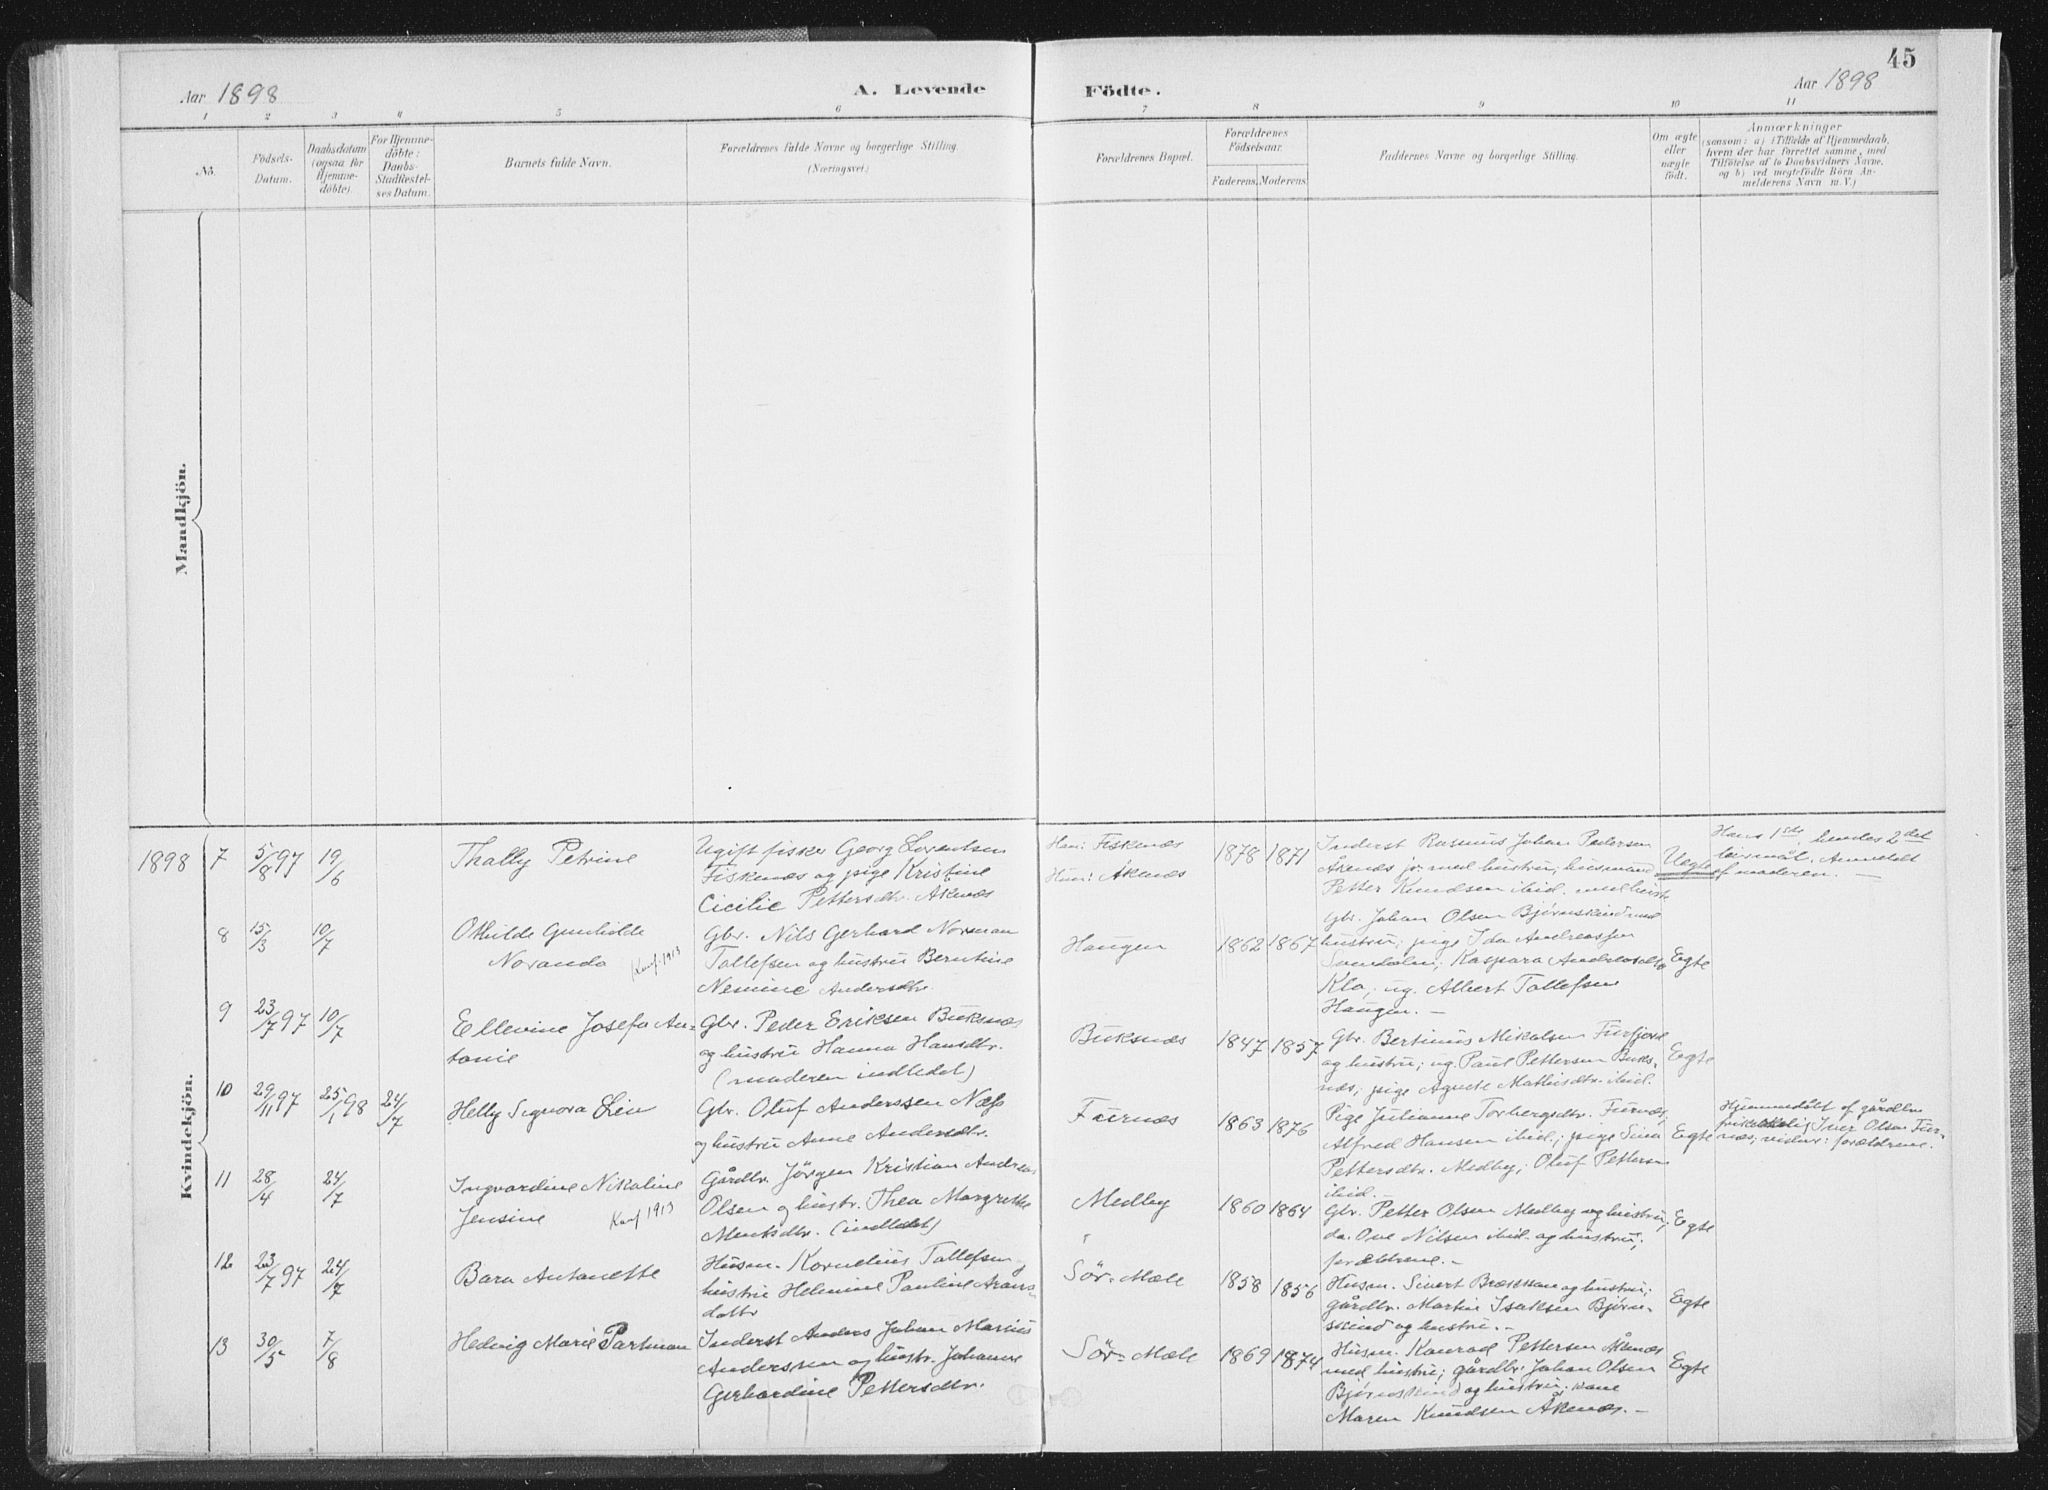 45
Aar 1898
A. Levende Födte.
Aar 1898
1 2 3 4 5 6 7 8 9 10 11
No.
Födsels-
Datum.
Daabsdatum
(ogsaa for
Hjemme-
döbte).
For Hjemme-
döbte:
Daabs-
Stadfæstel-
ses Datum.
Barnets fulde Navn.
Forældrenes fulde Navne og borgerlige Stilling.
(Næringsvei.)
Forældrenes Bopæl.
Forældrenes
Födselsaar.
Faderens. Moderens.
Faddernes Navne og borgerlige Stilling.
Om ægte
eller
uægte
födt.
Anmærkninger
(saasom: a) i Tilfælde af Hjemmedaab,
hvem der har forrettet samme, med
Tilföielse af to Daabsvidners Navne.
og b) ved uegtefödte Börn An-
melderens Navn m. V.)
Mandkjön.
Kvindekjön.
1898 7 5/8 97 19/6
Thally Petrine
Ugift fisker Georg
Fiskenæs og pige Kristine
Cicilie Pettersdtr. Åknæs
Han: Fiskenæs
Hun: Åkenæs
1878 1871
Inderst Rasmus Johan Pedersen
Åkenæs jr. med hustru; husmand
Petter Knudsen ibid. med hustr.
Uegte
Hans 1ste, hendes 2det
leiermål. Anmeldt
af moderen. —
8 15/3 10/7
Othilde Gunhilde
Noranda Konf. 1913
Gbr. Nils Gerhard Norman
Tollefsen og hustru Berntine
Nemine Andersdtr.
Haugen
1862 1867
Gbr. Johan Olsen Bjørnskind med
hustru; pige Ida Andreassen
Kaspara Andreasdtr.
Klo; ug. Albert Tollefsen
Haugen. —
Egte
9 23/7 97 10/7
Ellevine Josefa An-
tonie
Gbr. Peder Eriksen Buksnæs
og hustru Hanna Hansdtr.
(moderen indledet)
Buksnæs
1847 1857
Gbr. Bertinus Mikalsen Furfjord
og hustru; ug. Paul Pettersen Buks-
næs; pige Agnete Mathisdtr. ibid.
Egte
10 29/11 97 25/1 98 24/7
Helly Signora Lin
Gbr. Oluf Anderssen Næss
og hustru Anne Andersdtr.
Furnæs
1863 1876
Pige Julianne Torbergsdtr. Furnæs,
Alfred Hansen ibid.; pige Sina
Pettersdtr. Medby; Oluf Petters
ibid. —
Egte
Hjemmedöbt af gårdbr.
Iver Olsen Fur-
næs; vidner: forældrene.
11 28/4 24/7
Ingvardine Nikoline
Jensine Konf 1913
Gårdbr. Jörgen Kristian Andreas
Olsen og hustr. Thea Margrethe
Mentsdtr. (indledet)
Medby
1860 1864
Gbr. Petter Olsen Medby og hustru;
do. Ove Nilsen ibid. og hustru;
forældrene. —
Egte
12 23/7 97 24/7
Bara Antonette
Husm. Kornelius Tollefsen og
hustru Helmine Pauline Arons-
dattr
Sör-Mæle
1858 1856
Husm. Sivert Brækkan og hustru;
gårdbr. Martin Isaksen Bjørn-
skind og hustru. —
Egte
13 30/5 7/8
Hedvig Marie Partman
Inderst Anders Johan Marius
Anderssen og hustr. Johanne
Gerhardine Pettersdtr.
Sör-Mæle
1869 1874
Husm. Konrad Pettersen Åkenæs
med hustru; gårdbr. Johan Olsen
Bjørnskind og hustru; kone
Maren Knudsen Åkenæs. —
Egte